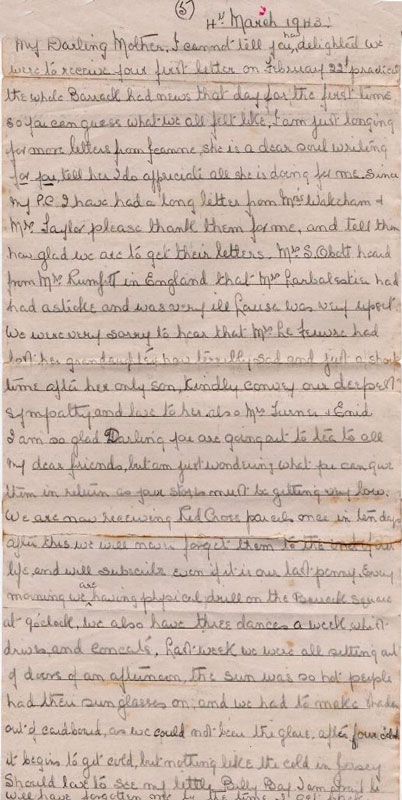 (5)
4th March 1943.
My Darling Mother, I cannot tell you, how delighted we
were to receive your first letter on February 22nd practical
the whole Barrack had news that day for the first time
so you can guess what we all felt like, I am just longing
for more letters from Jeanne, she is a dear soul writing
for you, tell her I do appreciate all she is doing for me. Since
my P.C. I have had a long letter from Mrs Wakeham &
Mrs Taylor please thank them for me, and tell them
how glad we are to get their letters. Mrs S. heard
from Mrs in England that Mrs Larbalestier had
had a stroke and was very ill Louisa was very upset.
We were very sorry to hear that Mrs Le Feuvre had
lost her grandaughter, how terribly sad and just a short
time after her only son, Kindly convey our deepest
sympathy, and love to her, also Mrs Turner & Enid
I am so glad Darling you are going out to tea to all
my dear friends, but am just wondering what you can give
them in return as your stores must be getting very low.
We are now receiving Red Cross parcels once in ten days,
after this we will never forget them to the end of our
life, and will subscribe even if it is our last penny. Every
morning we are having physical drill on the Barrack square
at 9 o'clock, we also have three dances a week, whist
drives, and concerts, Last week we were all sitting out
of doors of an afternoon, the sun was so hot people
had their sunglasses on, and we had to make shades
out of cardboard, as we could not bear the glare, after four o'clock
it begins to get cold, but nothing like the cold in Jersey
Should love to see my little Billy Boy, I am afraid he
will have forgotten me by the time I get back